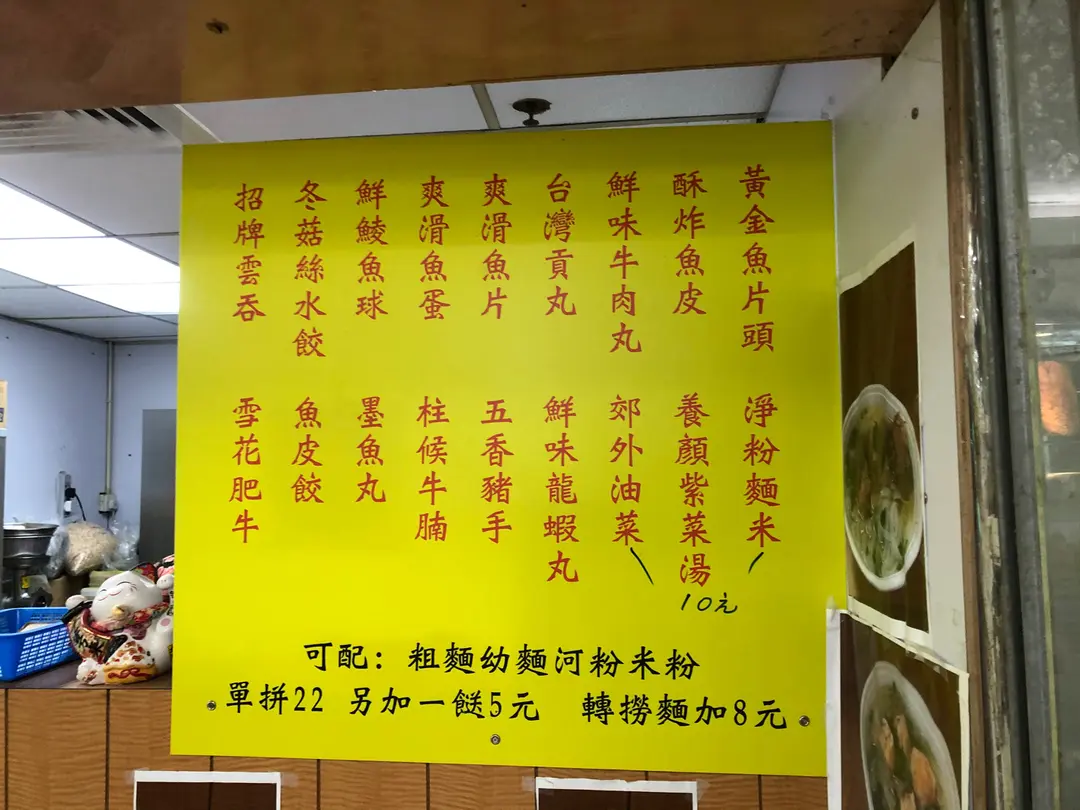 黃金魚片頭
酥炸魚皮
鮮味牛肉丸
台灣貢丸
爽滑魚片
爽滑魚蛋
鮮鯪魚球
冬菇絲水餃
招牌雲吞
淨粉麵米
養顏紫菜湯
郊外油菜
鮮味龍蝦丸
五香豬手
柱候牛腩
墨魚丸
魚皮餃
雪花肥牛
10元
可配：粗麵幼麵河粉米粉
單拼22 另加一餸5元 轉撈麵加8元